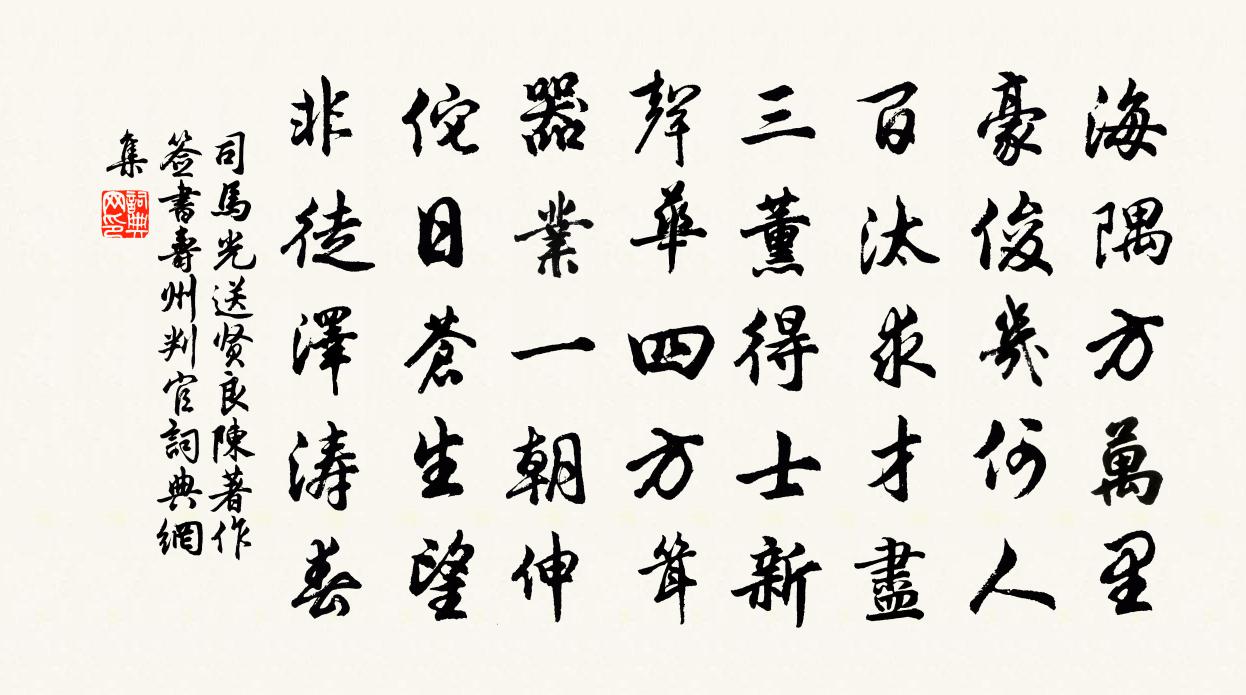 海隅方萬里
豪俊幾何人
百汰求才盡
三薰得士新
聲華四方聳
器業一朝伸
侘日蒼生望
非徒澤濤春
司馬光送贤良陳著作
签書壽州判官詞典網
集
詞典网印